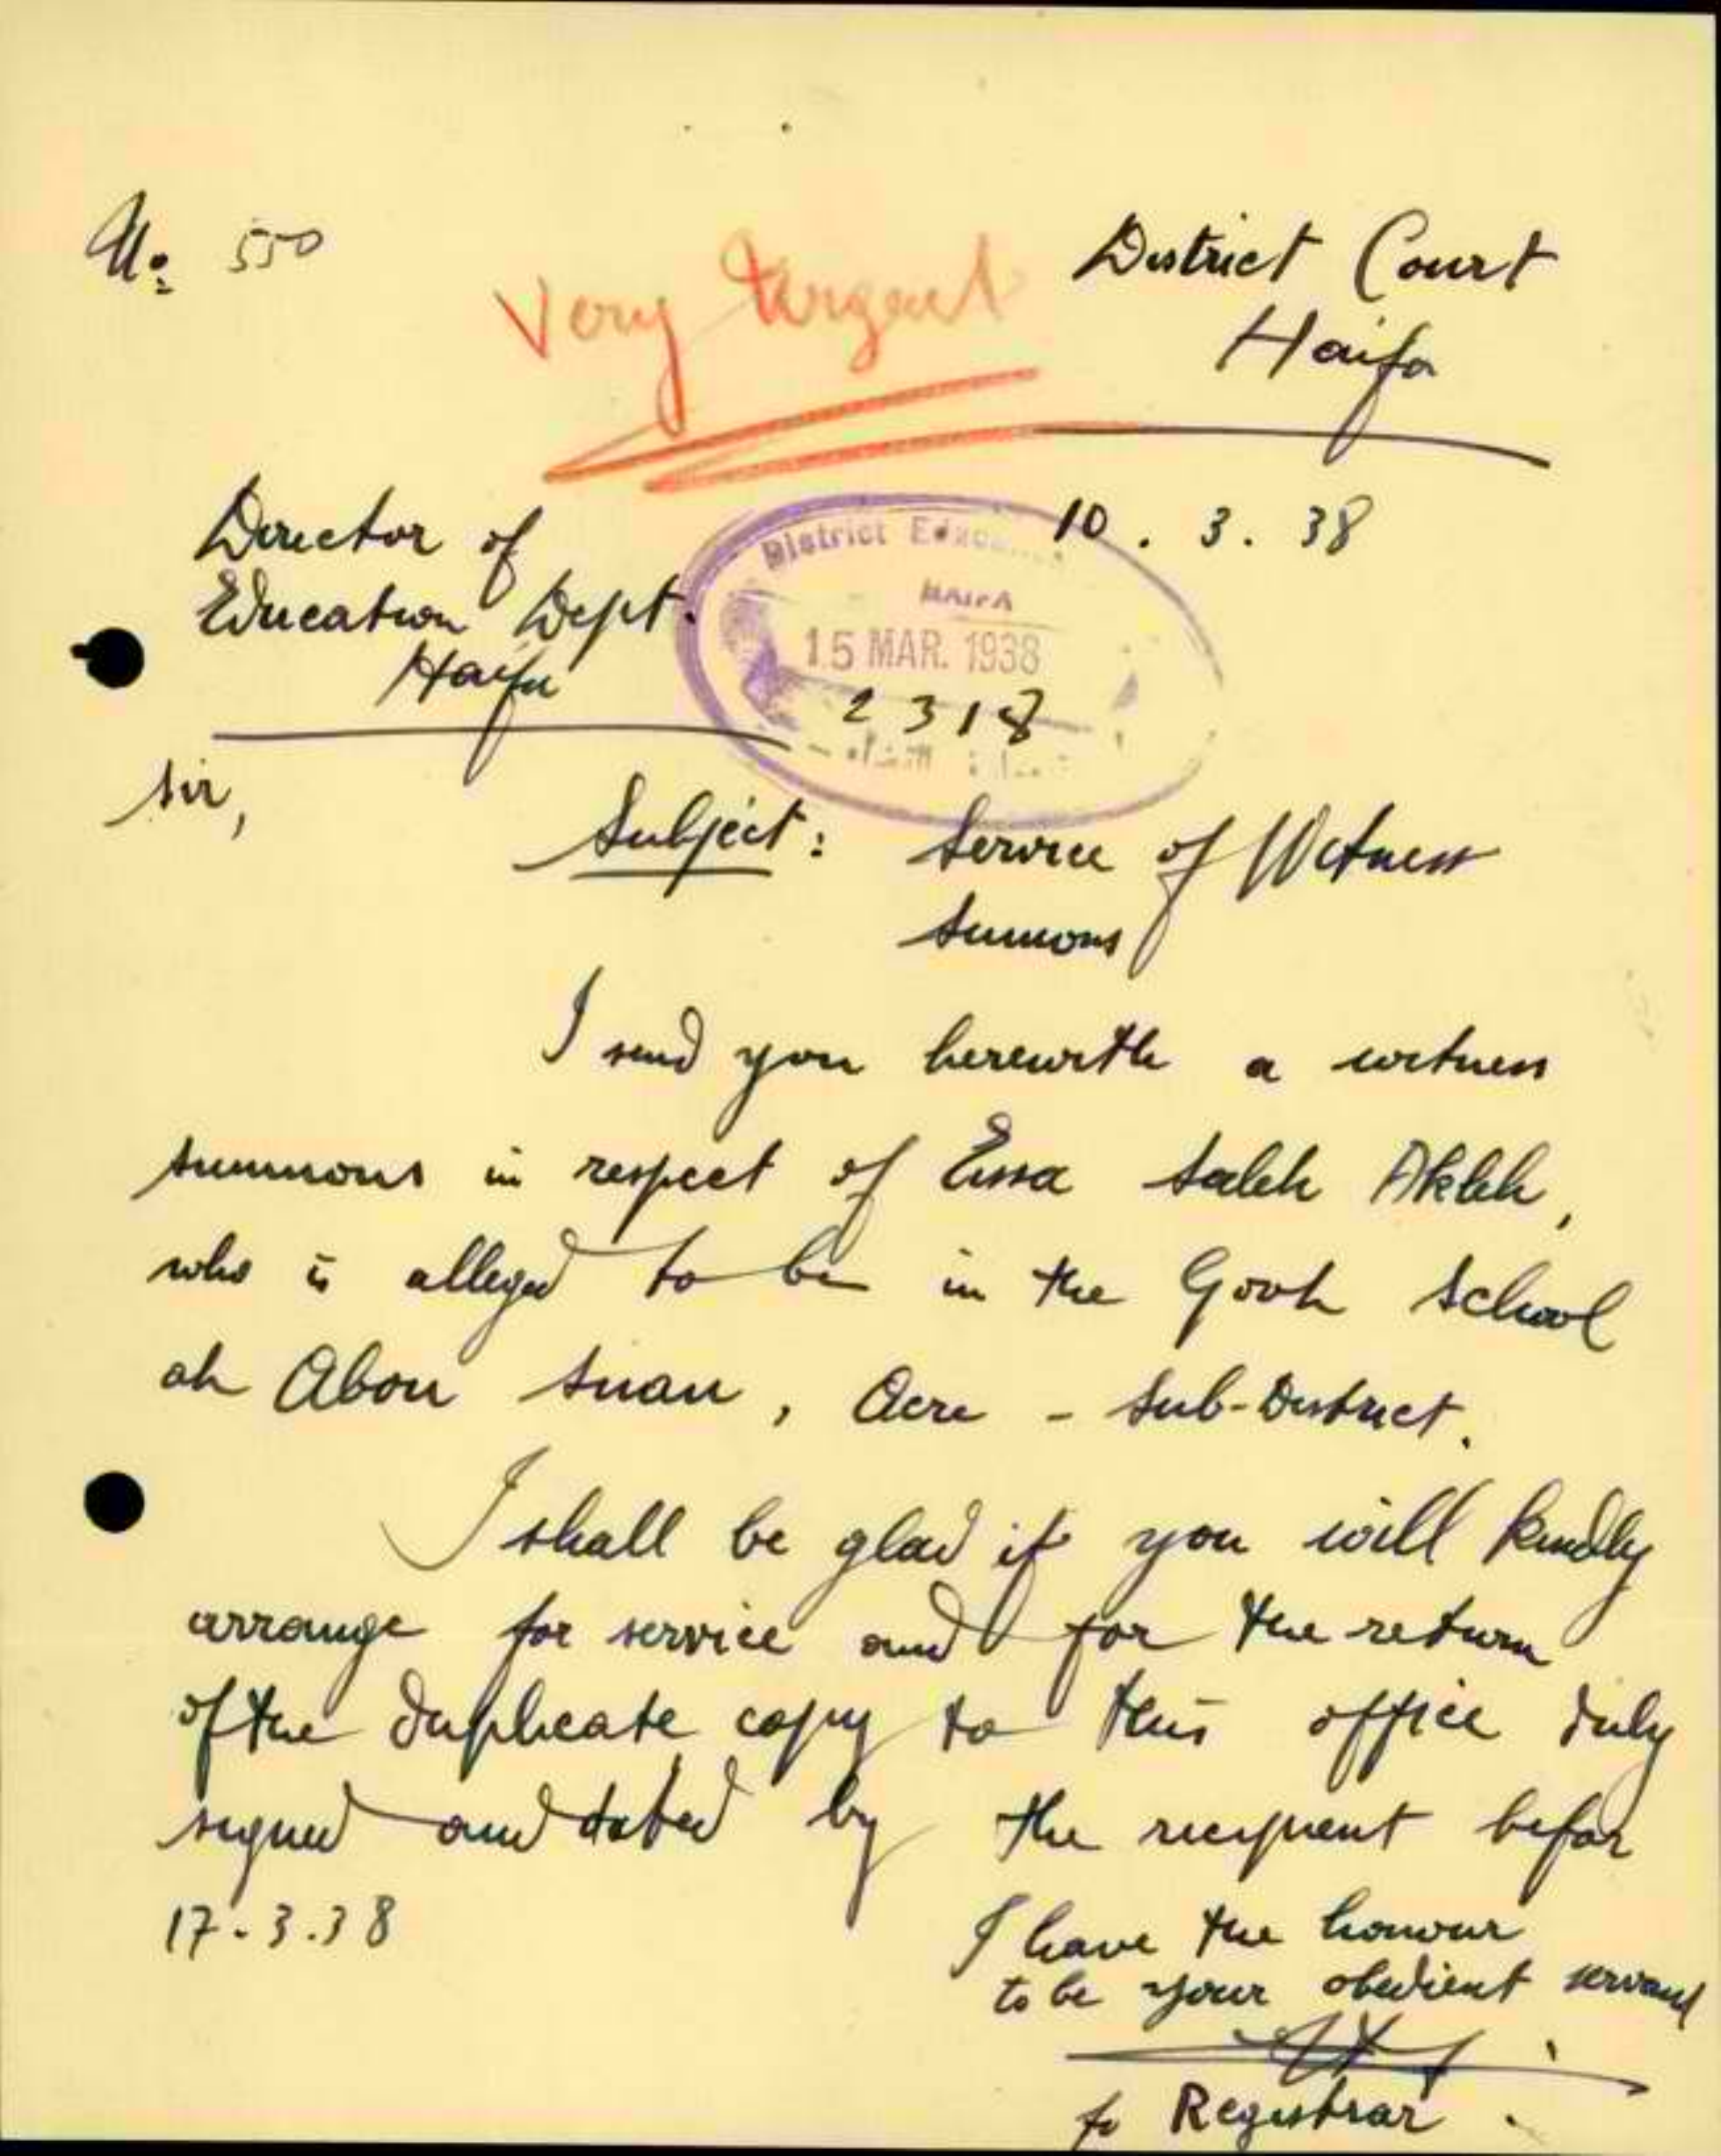 No: 550
Very Urgent
District Court
Haifa
10 . 3 . 38
Director of
Education Dept.
Haifa
District
HAIFA
15 MAR. 1938
2318
Sir,
Subject: Service of Witness
Summons
I send you herewith a witness
summons in respect of Essa Saleh Akleh,
who is alleged to be in the Govt School
at Abou Snan, Acre - Sub-District.
I shall be glad if you will kindly
arrange for service and for the return
of the duplicate copy to this office duly
signed and dated by the recipient befor
17.3.38
I have the honour
to be your obedient servant
fr Registrar.